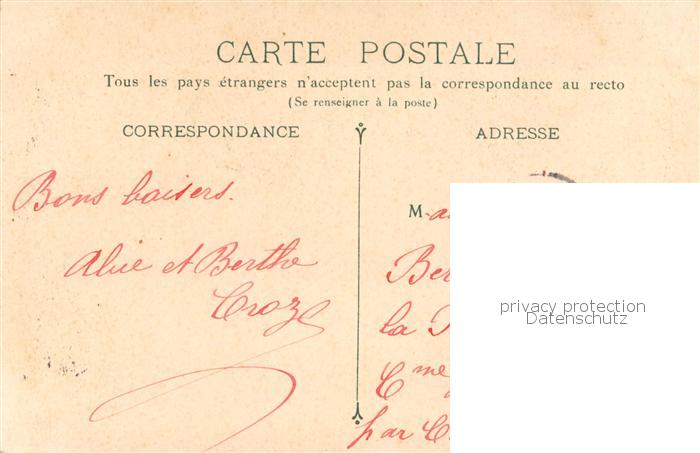 CARTE POSTALE
Tous les pays étrangers n'acceptent pas la correspondance au recto
(Se renseigner à la poste)
CORRESPONDANCE
Bons baisers.
Alice et Berthe
Croz
ADRESSE
M
Ber
la
C me
par C
privacy protection
Datenschutz